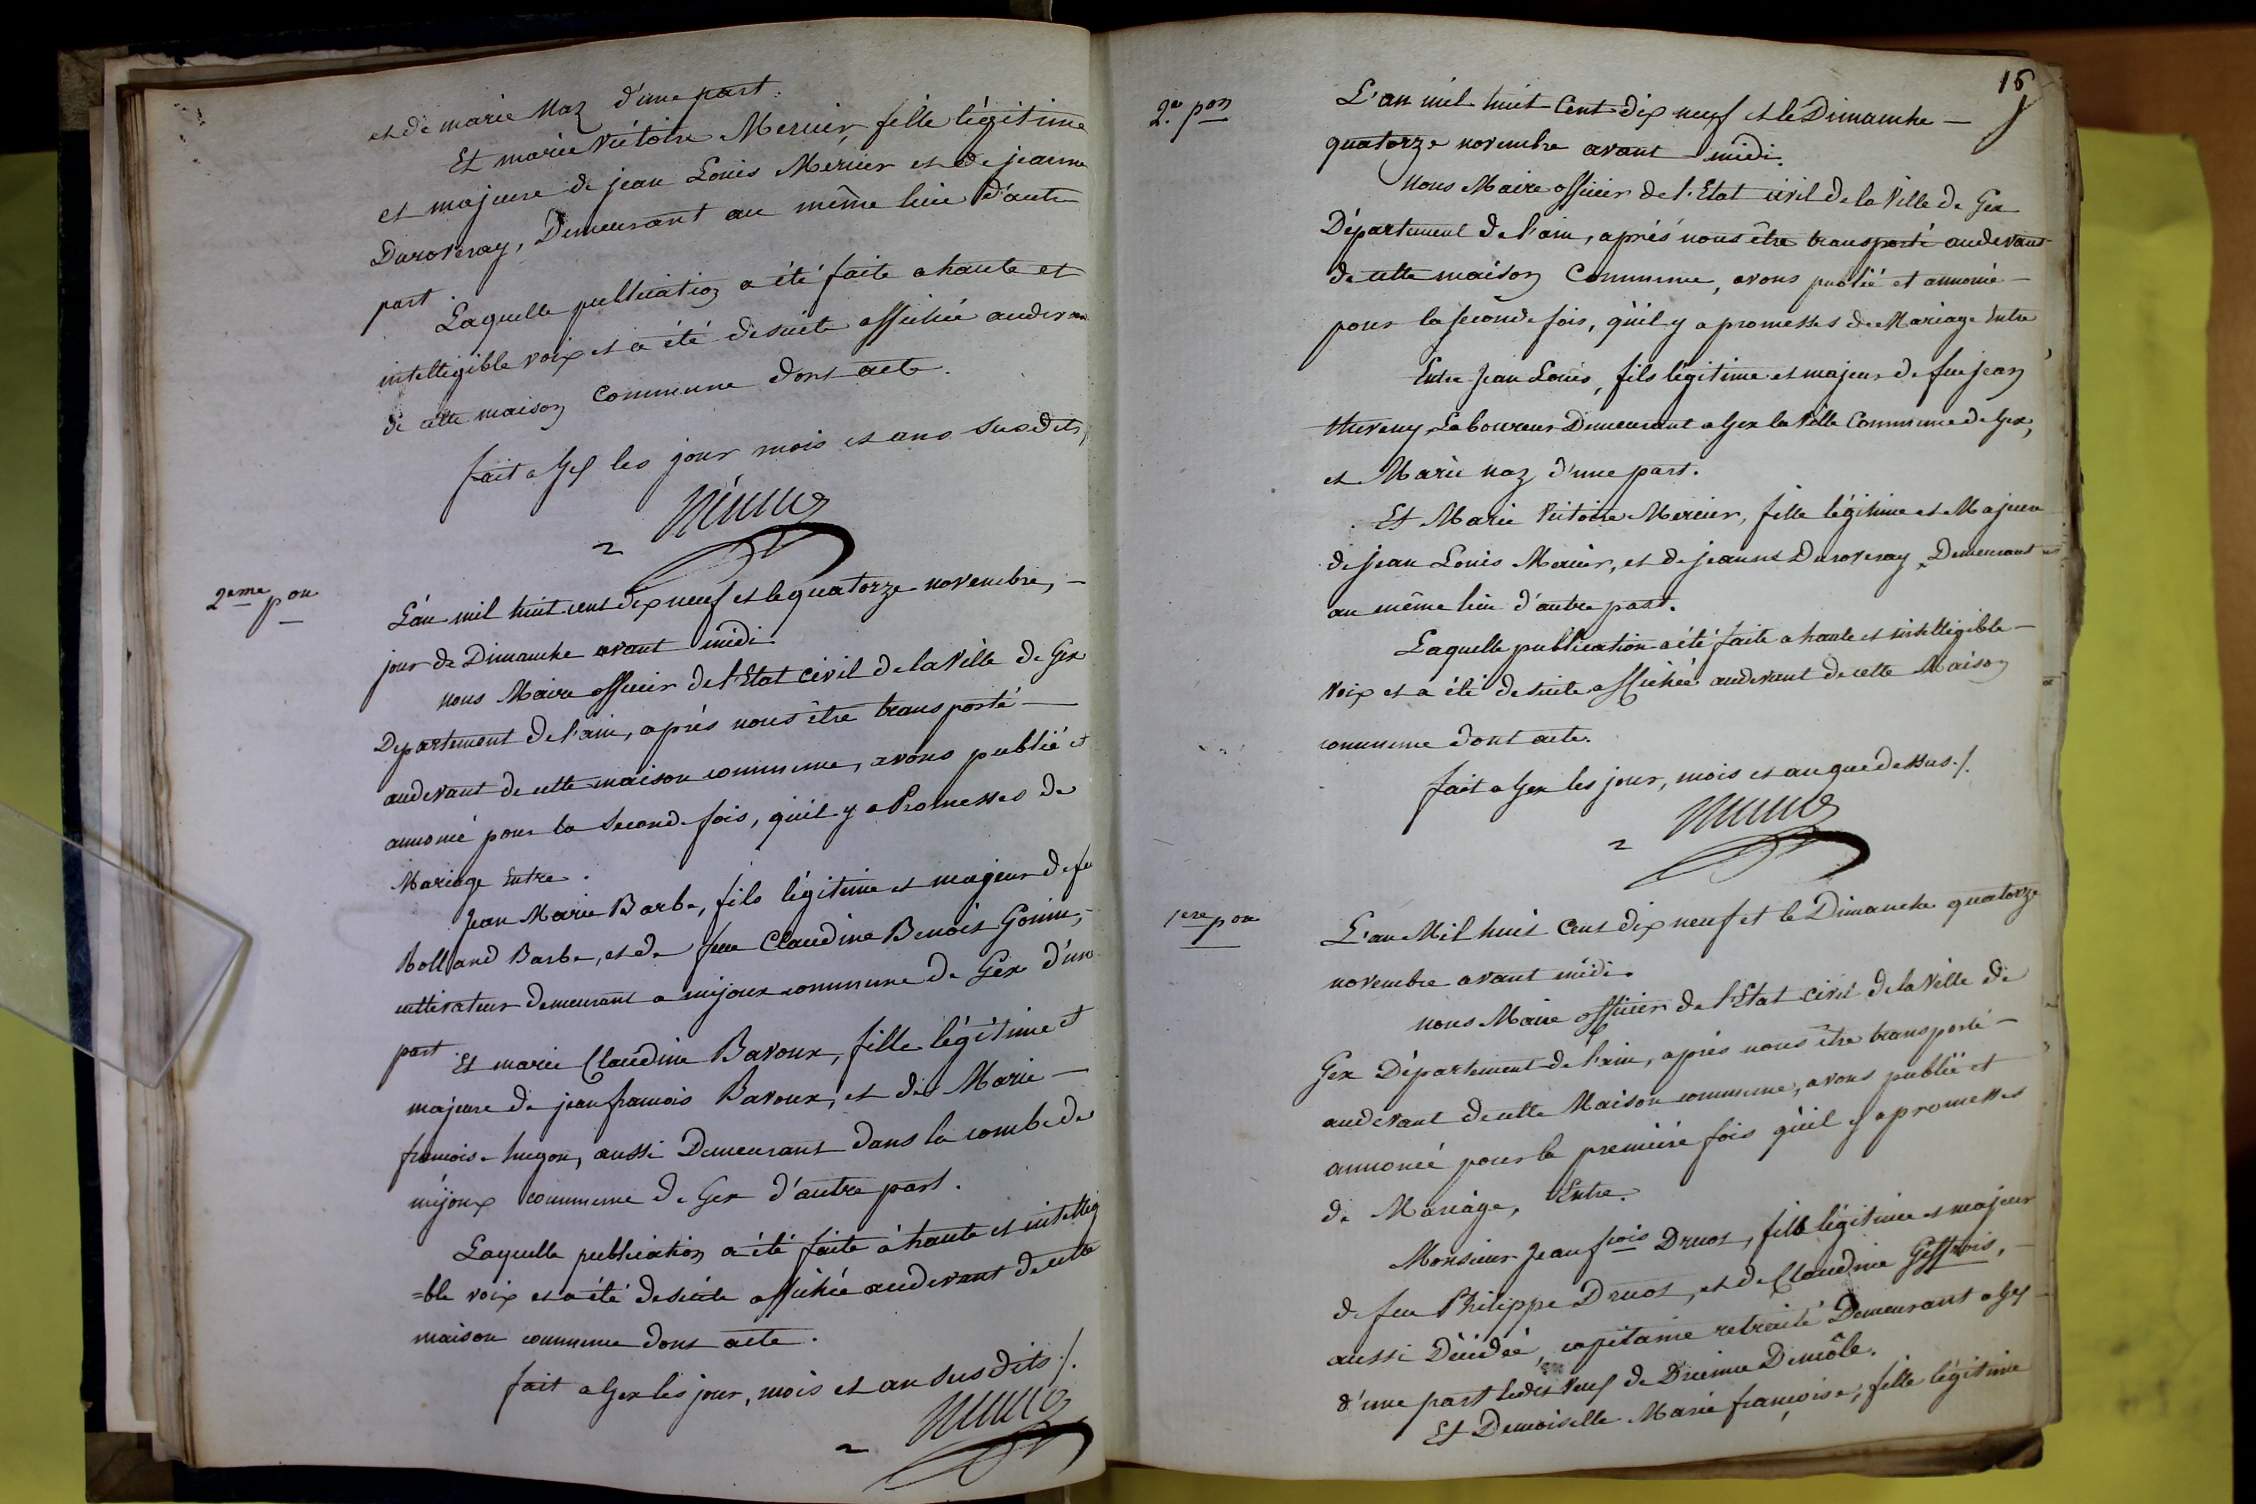 et de marie Naz d'une part.
Et marie Victoire Mercier, fille légitime
et majeure de jean Louis Mercier et de jeanne
Duroveray, Demeurant au même lieu d'autre
part.
Laquelle publication a été faite a haute et
intelligible voix et a été desuite affichée audevant
de cette maison Commune dont acte.
fait a Gex les jour mois et ans susdits,
2eme pon
L'an mil huit cent dix neuf et le quatorze novembre, –
jour de Dimanche avant midi.
nous Maire officier de l'Etat civil de la Ville de Gex
Departement de l'ain, après nous être transporté –
audevant de cette maison commune, avons publié et
annoncé pour la seconde fois, qu'il y a Promesses de
Mariage Entre.
Jean Marie Barbe, fils légitime et majeur de feu
Rolland Barbe, et de feue Claudine Benoit Gonin,
cultivateur demeurant a mijoux commune de Gex d'une
part
Et marie Claudine Bavoux, fille légitime et
majeure de jean francois Bavoux, et de Marie –
francoise hugon, aussi Demeurant dans la combe de
mijoux commune de Gex d'autre part.
Laquelle publication a été faite à haute et intelligi
=ble voix et a été desuite affichée audevant de cette
maison commune dont acte.
fait a Gex les jour, mois et an susdits ./.
16
2e pon
L'an mil huit Cent dix neuf et le Dimanche –
quatorze novembre avant midi.
Nous Maire officier de l'Etat civil de la Ville de Gex
Département de l'ain, après nous être transporté audevant
de cette maison Commune, avons publié et annoncé –
pour la seconde fois, qu'il y a promesses de Mariage Entre
Entre Jean Louis, fils légitime et majeur de feu jean
Laboureur Demeurant a Gex la Ville Commune de Gex,
et Marie naz d'une part.
Et Marie Victoire Mercier, fille légitime et Majeure
de jean Louis Mercier, et de jeanne Duroveray, Demeurant
au même lieu d'autre part.
Laquelle publication a été faite a haute et intelligible –
voix et a été desuite affichée audevant de cette Maison
commune dont acte.
fait a Gex les jour, mois et an que dessus ./.
1ere pon
L'an Mil huit Cent dix neuf et le Dimanche quatorze
novembre avant midi.
nous Maire officier de l'Etat civil de la Ville de
Gex Département de l'ain, après nous être transporté –
audevant de cette Maison commune, avons publié et
annoncé pour la première fois qu'il y a promesses
de Mariage, Entre.
Monsieur Jean fcois Druot, fils légitime et majeur
de feu Philippe Druot, et de Claudine Geffrois, –
aussi Décédée, capitaine retraité Demeurant a Gex –
d'une part Ledit Veuf de Demôle.
Et Demoiselle Marie françoise, fille légitime